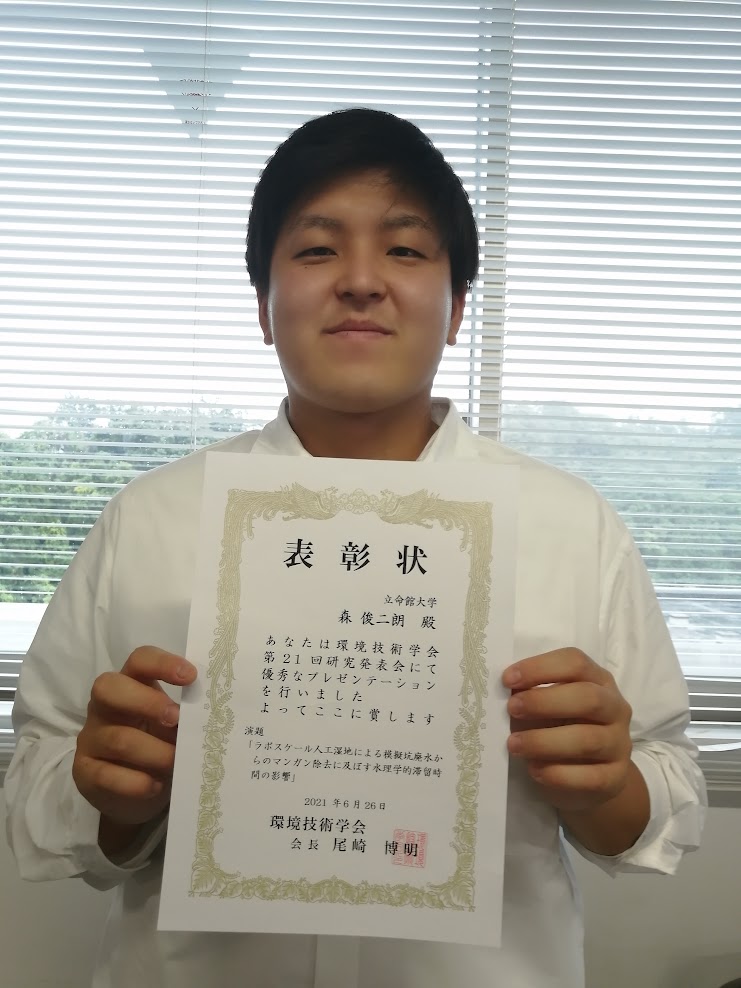 表彰状
立命館大学
森 俊二朗 殿
あなたは環境技術学会
第21回研究発表会にて
優秀なプレゼンテーション
を行いました
よってここに賞します
演題
「ラボスケール人工湿地による模擬坑廃水か
らのマンガン除去に及ぼす水理学的滞留時
間の影響」
2021年6月26日
環境技術学会
会長 尾崎 博明